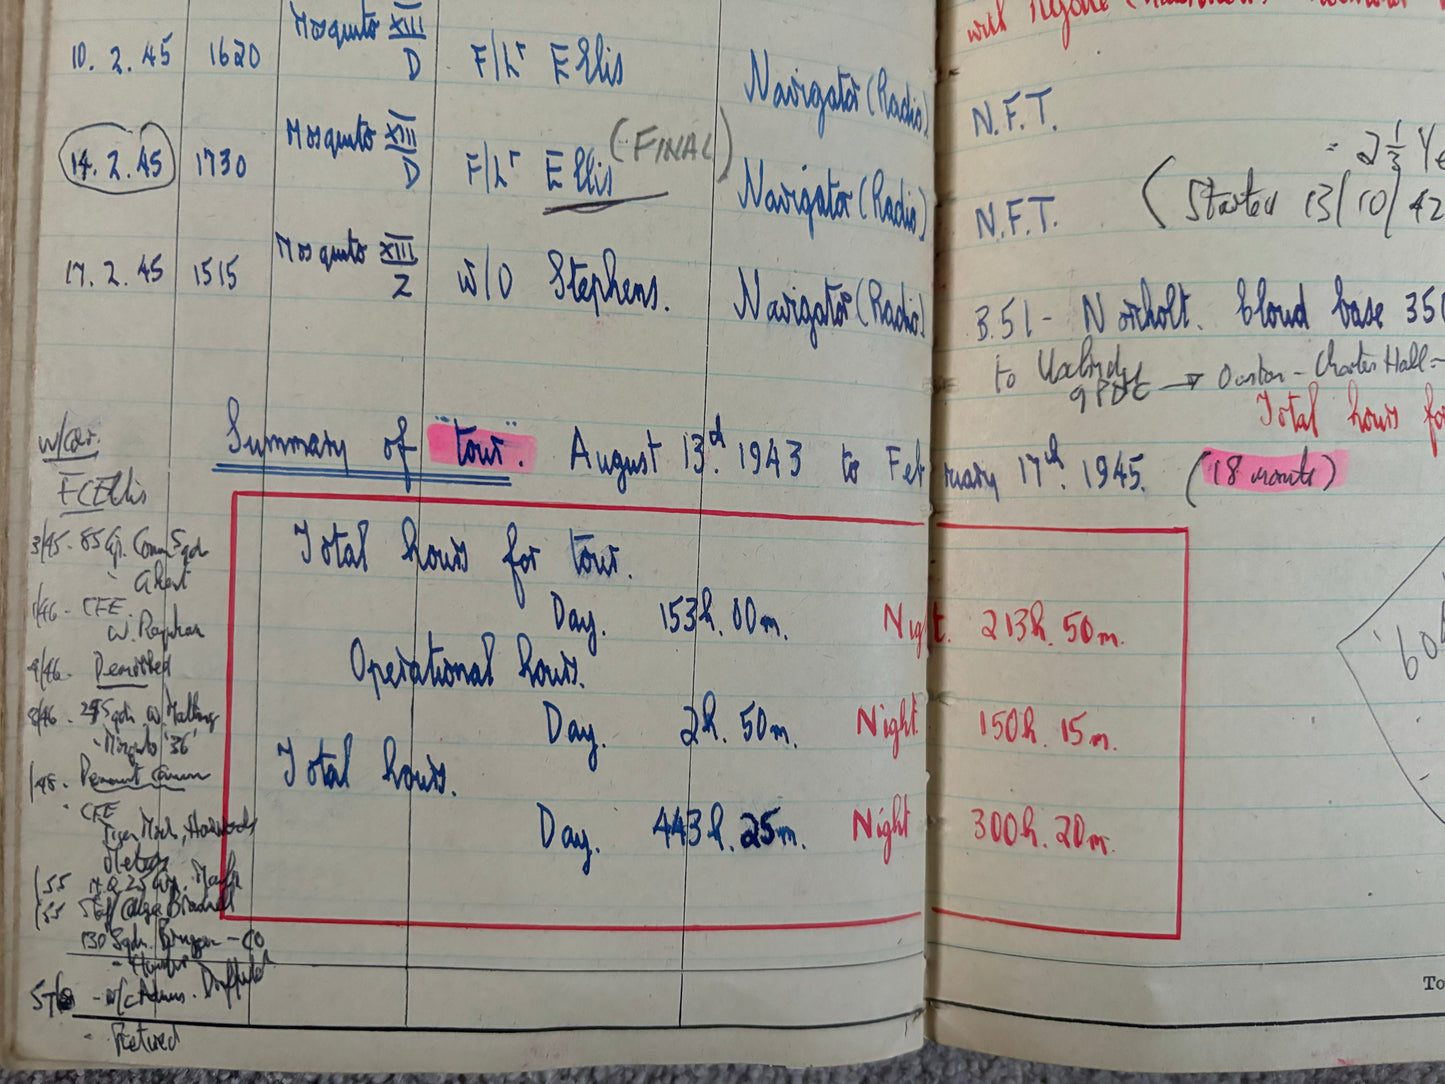 will
10. 2. 45 1620 Mosquito XIII D F/Lt Ellis Navigator (Radio) N.F.T.
14. 2. 45 1730 Mosquito XIII D F/Lt Ellis (FINAL) Navigator (Radio) N.F.T.
= 2 1/3 Ye
(Started 13/10/42
17. 2. 45 1515 Mosquito XIII Z W/O Stephens. Navigator (Radio) B.51 - Northolt. Cloud base 350
to Uxbridge → Ouston - Charter Hall =
9 PDC
Total hours for
Summary of "tour". August 13th. 1943 to February 17th. 1945. (18 months)
Total hours for tour.
Day. 153h. 00m. Night. 213h. 50m.
Operational hours.
Day. 2h. 50m. Night 150h. 15m.
Total hours.
Day. 443h. 25m. Night 300h. 20m.
'60
To
W/Cdr.
F C Ellis
3/45 - 85 Gp. Comm Sqdn
Ghent
1/46 - CFE
W. Raynham
4/46.
8/46 . 29 Sqdn W. Malling
- Mosquito '36'
1/48. Permanent Comm
CFE
Tiger Moth, Harvards
Meteors
/55 H.Q. 25 Gp.
/55 Staff College Bracknell
130 Sqdn. Bruggen - CO
- Hunter
- W/C Admin. Driffield
- Retired